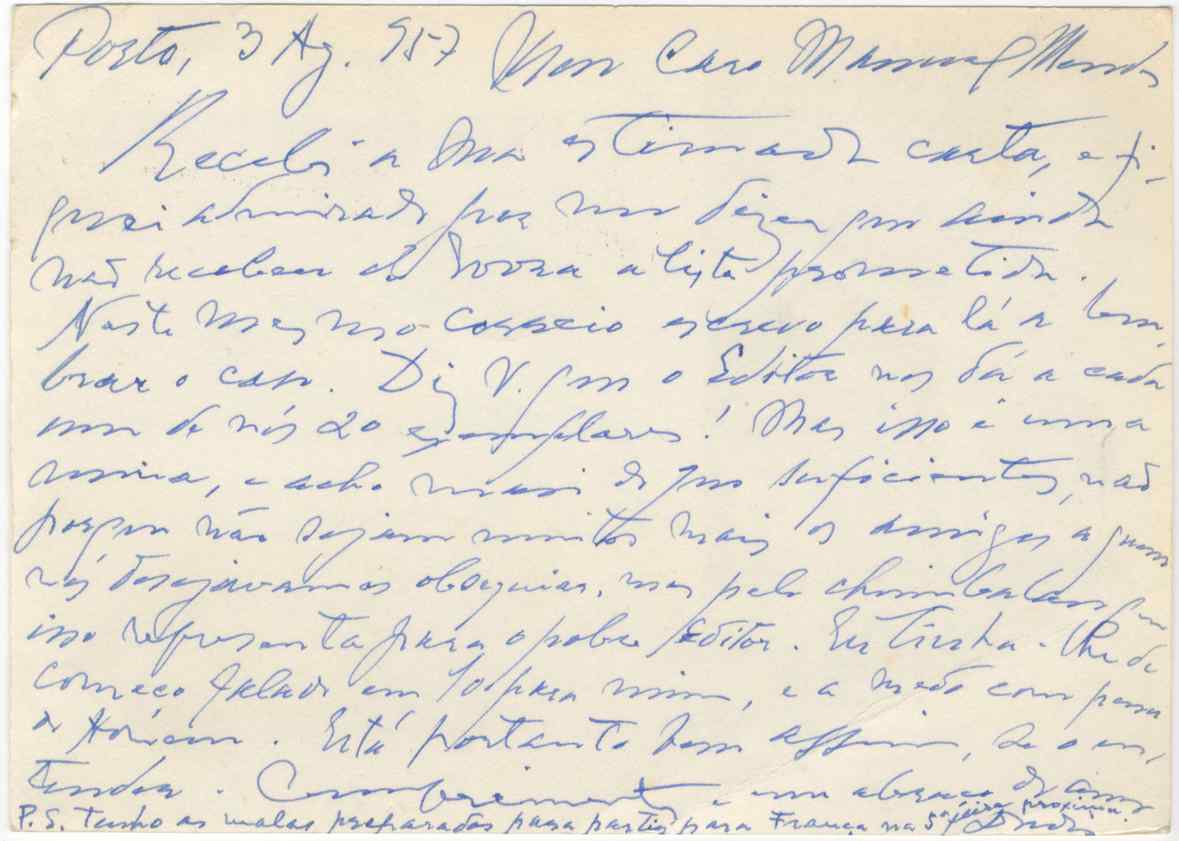 Porto, 3 Ag. 957 Meu Caro Manuel Mendes
Recebi a sua estimada carta, e fi-
quei admirado por me dizer que ainda
não recebeu de a lista prometida.
Neste mesmo correio escrevo para lá a lem
brar o caso. Diz V. que o Editor nos dá a cada
um de nós 20 exemplares! Mas isso é uma
mina, e acho mais do que suficientes, não
porque não sejam muitos mais os amigos a quem
nós desejavamos obsequiar, mas pelo que
isso representa para o pobre Editor. Eu tinha-lhe de
começo falado em 10 para mim, e a medo com pena
do homem. Está portanto bem assim, se o en-
tender. Cumprimentos e um abraço do amo
P. S. Tenho as malas preparadas para partir para França na 5ª feira proxima.